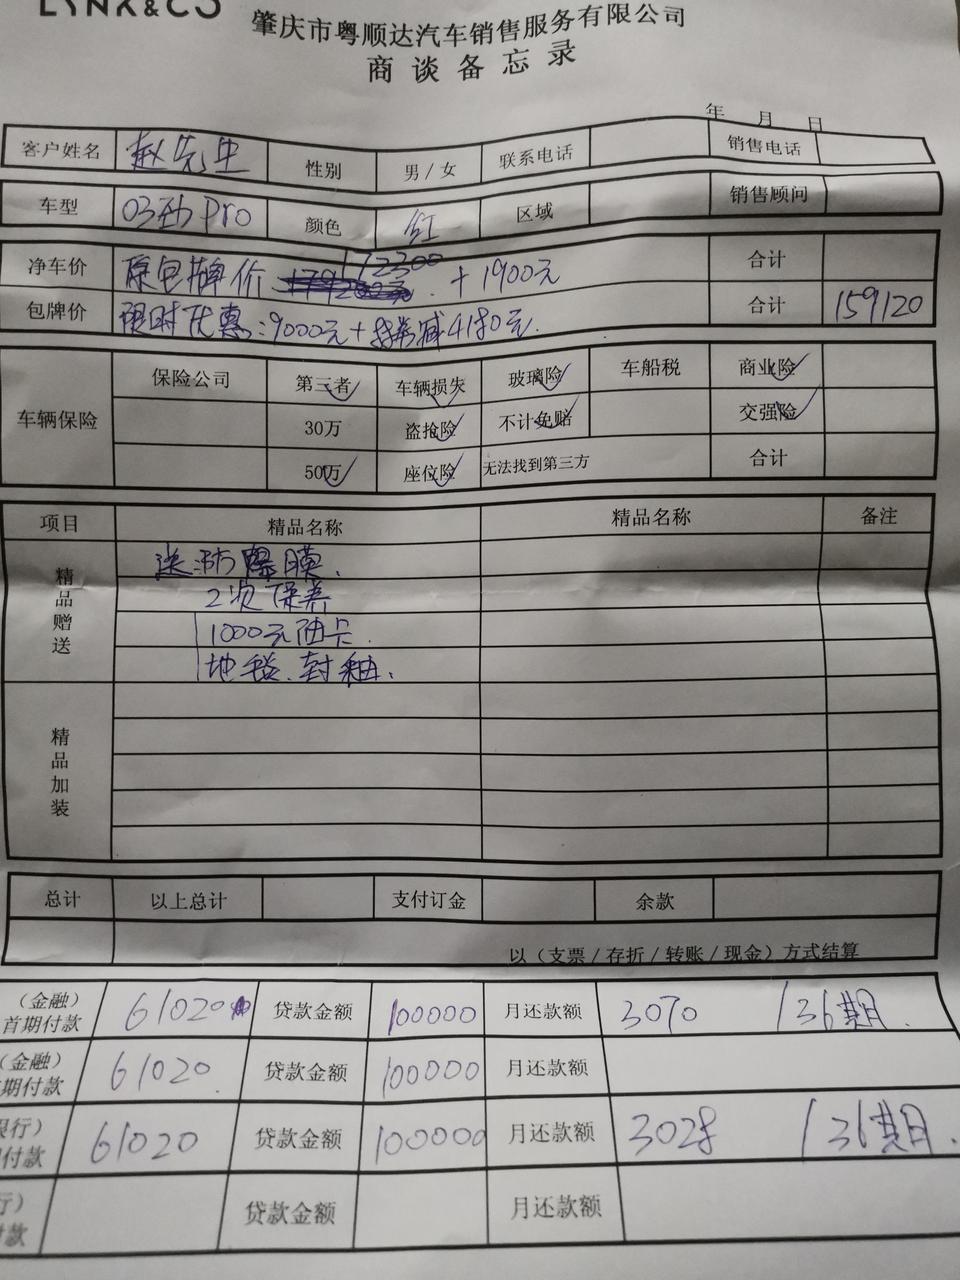 LYNK&CO
肇庆市粤顺达汽车销售服务有限公司
商谈备忘录
年 月 日
客户姓名 赵先生 性别 男/女 联系电话 销售电话
车型 03劲Pro 颜色 红 区域 销售顾问
净车价 原包牌价 172300 + 1900元 合计
包牌价 限时优惠:9000元+ 减4180元. 合计 159120
车辆保险 保险公司 第三者 车辆损失 玻璃险 车船税 商业险
30万 盗抢险 不计免赔 交强险
50万 座位险 无法找到第三方 合计
项目 精品名称 精品名称 备注
精品赠送 送防爆膜.
2次保养
1000元油卡.
地毯.封釉.
精品加装
总计 以上总计 支付订金 余款
以(支票/存折/转账/现金)方式结算
(金融)首期付款 61020 贷款金额 100000 月还款额 3070 /36期.
(金融)期付款 61020. 贷款金额 100000 月还款额
行)付款 61020 贷款金额 100000 月还款额 3028 /36期.
行)款 贷款金额 月还款额